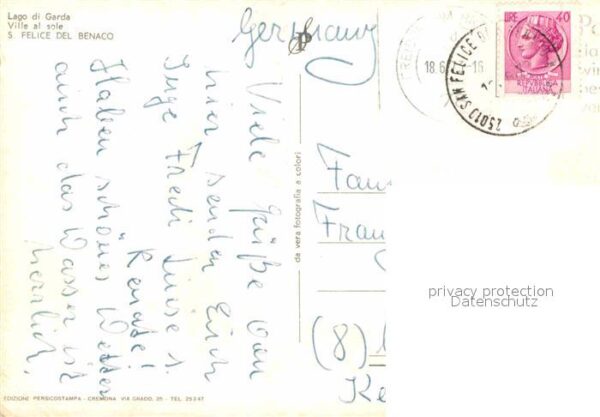 Lago di Garda
Ville al sole
S. FELICE DEL BENACO
Germany
Viele Grüße von
hier senden Euch
Inge Fredi Luise s.
Renate!
Haben schönes Wetter
auch das Wasser ist
herrlich.
da vera fotografia a colori
LIRE 40
REPVBBLICA ITALIANA
18.6
16
25010 SAN FELICE DEL
Fam
Fran
(8)
Ke
privacy protection
Datenschutz
EDIZIONE PERSICOSTAMPA - CREMONA VIA GRADO, 25 - TEL. 25247